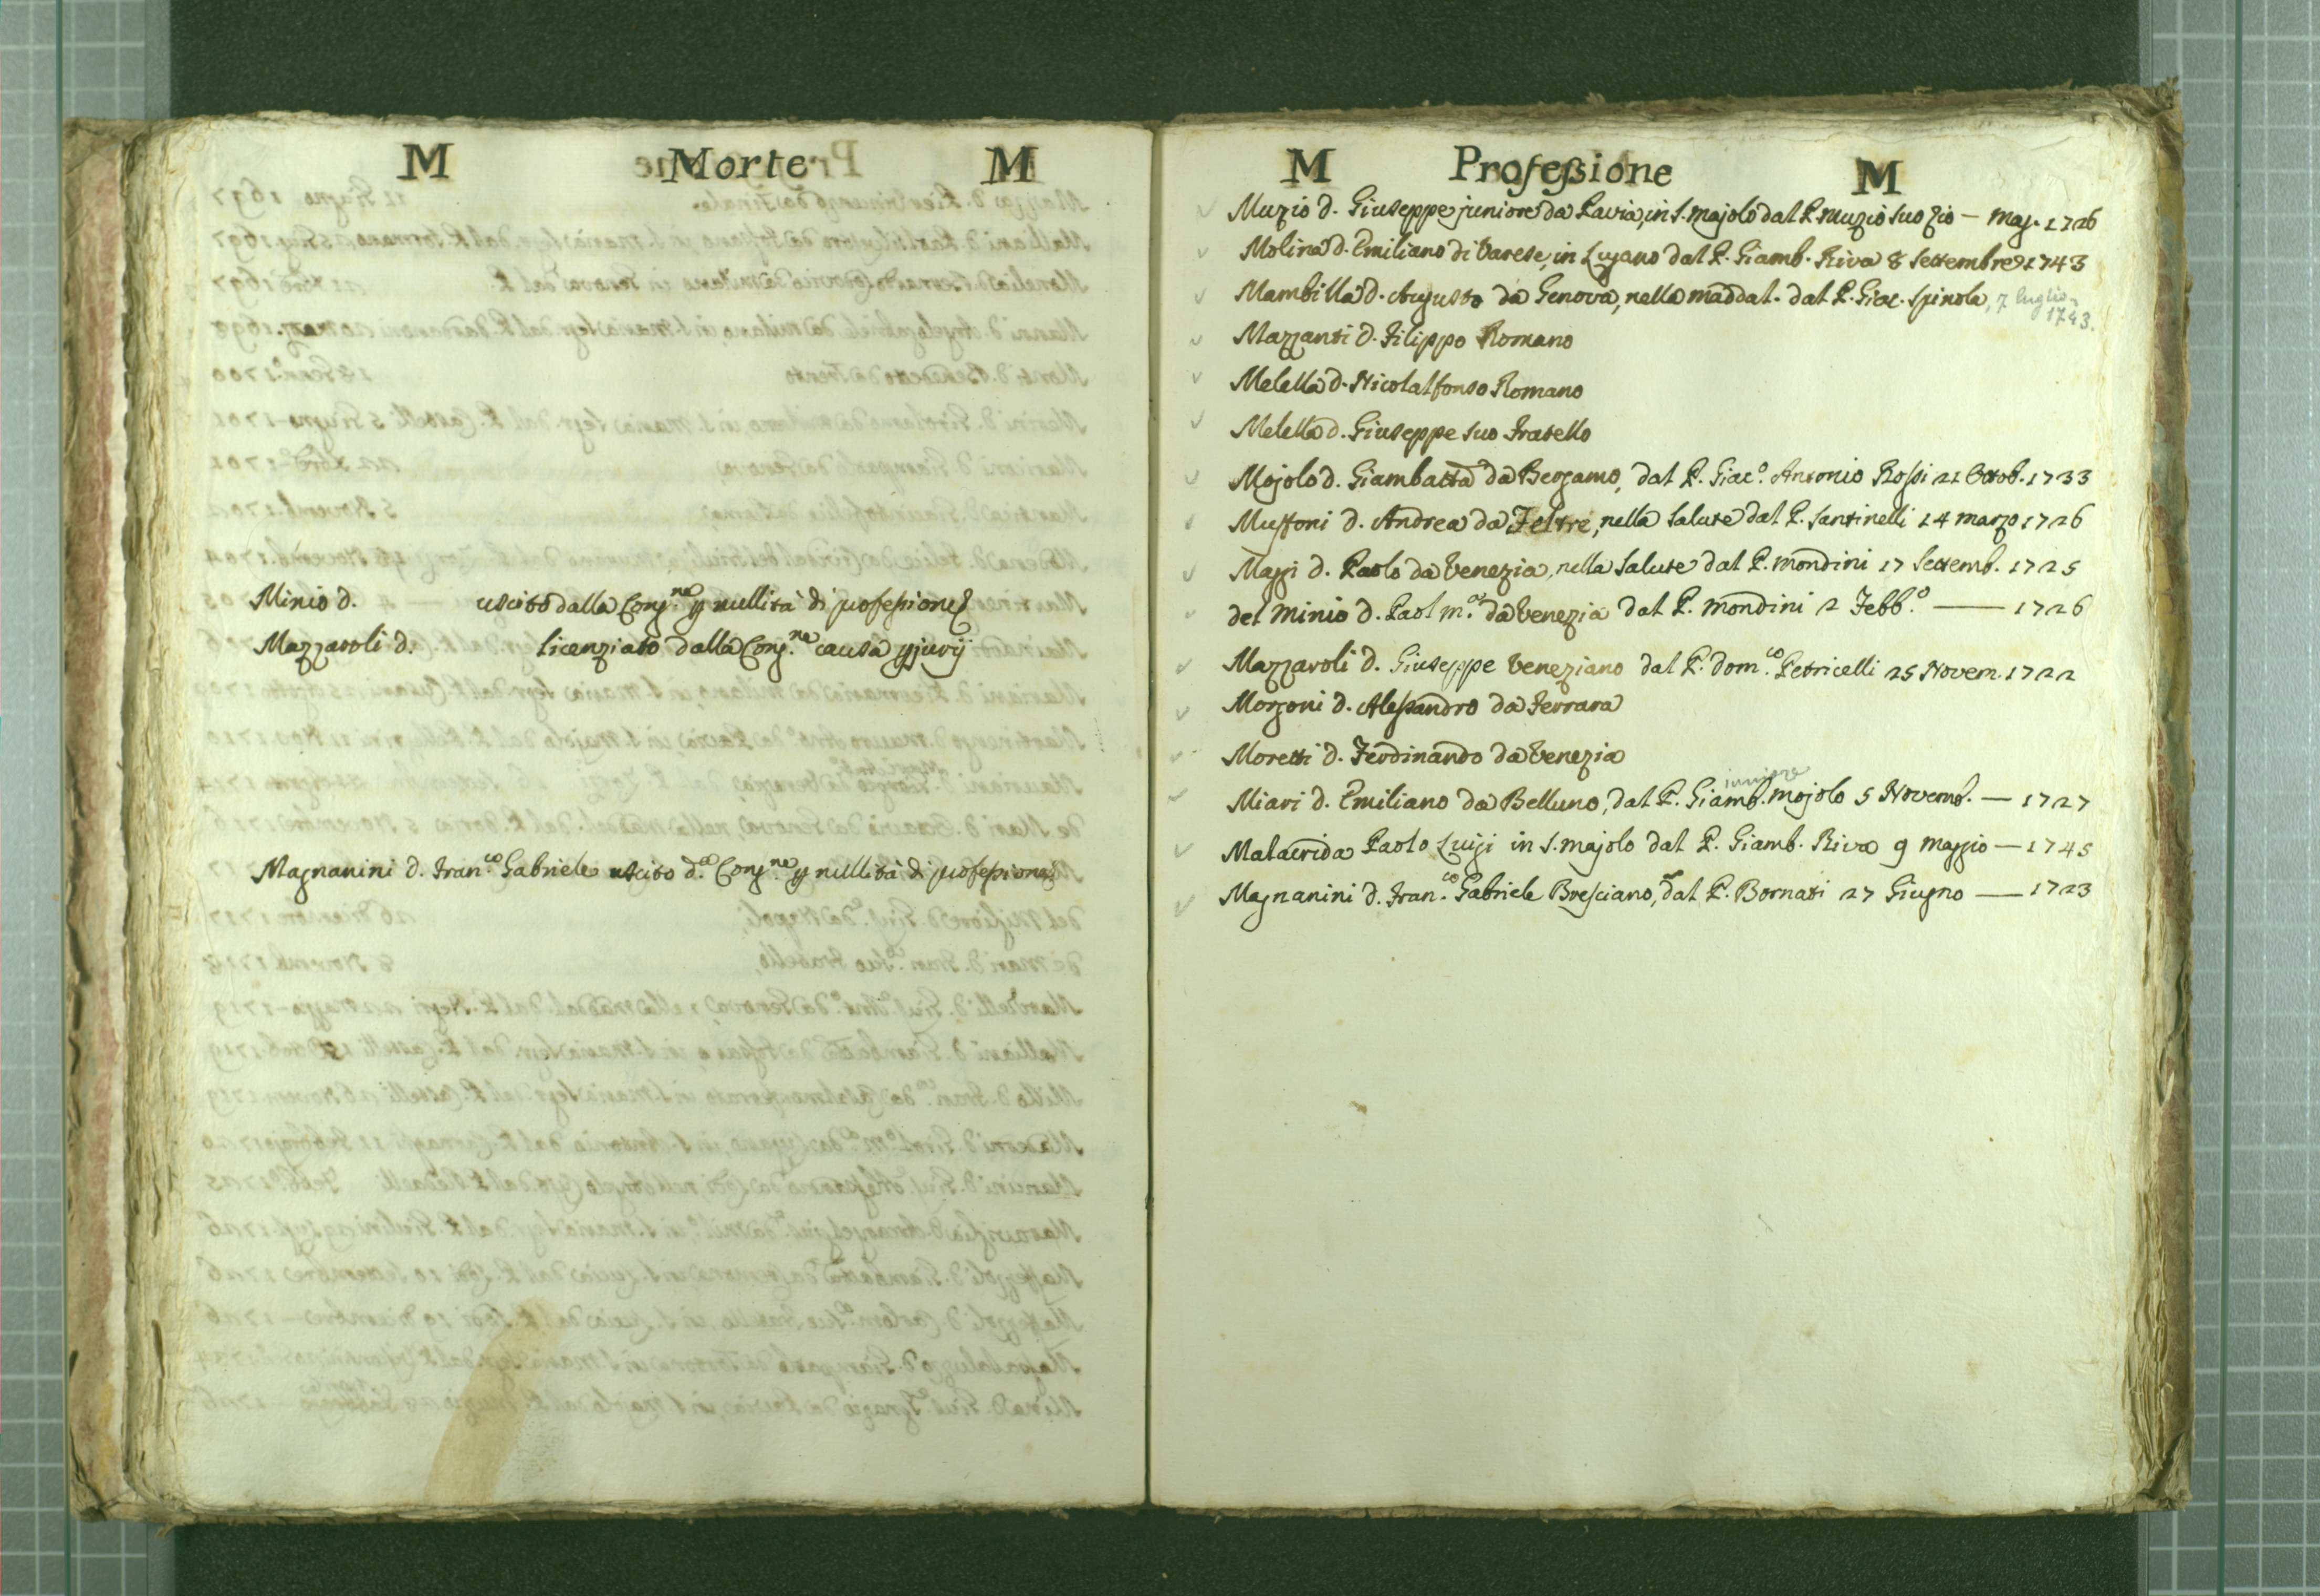 M Morte M
Minio d. uscito dalla Cong.ne p nullità di professione
Mazzaroli d. licenziato dalla Cong.ne causa pjurij
Magnanini d. Fran.co Gabriele uscito d.a Cong.ne p nullità di professione
M Professione M
Muzio d. Giuseppe juniore da Pavia, in S. Majolo dal P. Muzio suo zio — Mag. 1726
Molina d. Emiliano di Varese, in Lugano dal P. Giamb. Riva 8 Settembre 1743
Mambilla d. Augusto da Genova, nella Maddal. dal P. Giac. Spinola, 7 luglio
1743.
Mazzanti d. Filippo Romano
Melella d. Nicolalfonso Romano
Melella d. Giuseppe suo Fratello
Mojolo d. Giambatta da Bergamo, dal P. Giac.o Antonio Rossi 21 Ottob. 1733
Mussoni d. Andrea da Feltre, nella Salute dal P. Santinelli 14 Marzo 1726
Mazzi d. Paolo da Venezia, nella Salute dal P. Mondini 17 Settemb. 1725
del Minio d. Paol M.a da Venezia dal P. Mondini 2 Febb.o — 1726
Mazzaroli d. Giuseppe Veneziano dal P. Dom.co Petricelli 25 Novem. 1722
Morzoni d. Alessandro da Ferrara
Moretti d. Ferdinando da Venezia
juniore
Miari d. Emiliano da Belluno, dal P. Giamb. Mojolo 5 Novemb. — 1727
Malacrida Paolo Luigi in S. Majolo dal P. Giamb. Riva 9 Maggio — 1745
Magnanini d. Fran.co Gabriele Bresciano, dal P. Bornati 27 Giugno — 1723